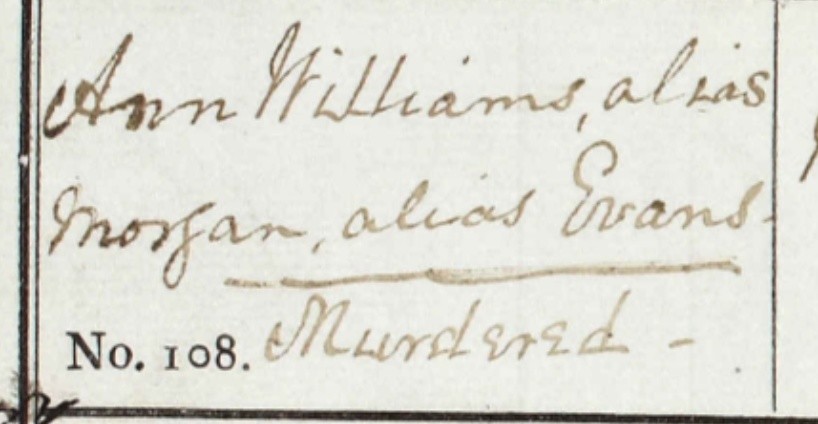 Ann Williams, alias
Morgan, alias Evans.
No. 108. Murdered -